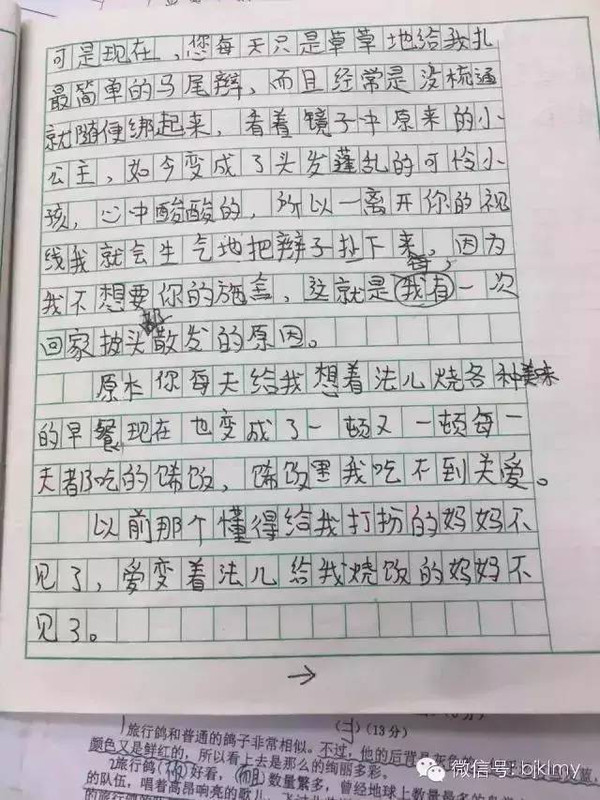 可是现在，您每天只是草草地给我扎
最简单的马尾辫，而且经常是没梳通
就随便绑起来，看着镜子中原来的小
公主，如今变成了头发蓬乱的可怜小
孩，心中酸酸的，所以一离开你的视
线我就会生气地把辫子扯下来，因为
我不想要你的施舍，这就是我每一次
回家都披头散发的原因。
原本你每天给我想着法儿烧各种美味
的早餐现在也变成了一顿又一顿每一
天都吃的馋饭，馋饭里我吃不到关爱。
以前那个懂得给我打扮的妈妈不
见了，爱变着法儿给我烧饭的妈妈不
见了。
→
(二)(13分)
1旅行鸽和普通的鸽子非常相似。不过，他的后背是灰色
颜色又是鲜红的，所以看上去是那么的绚丽多彩。
2旅行鸽 好看，而且数量繁多，曾经地球上数量最多的鸟
的队伍，唱着高昂响亮的歌儿，飞
微信号: bjklmy